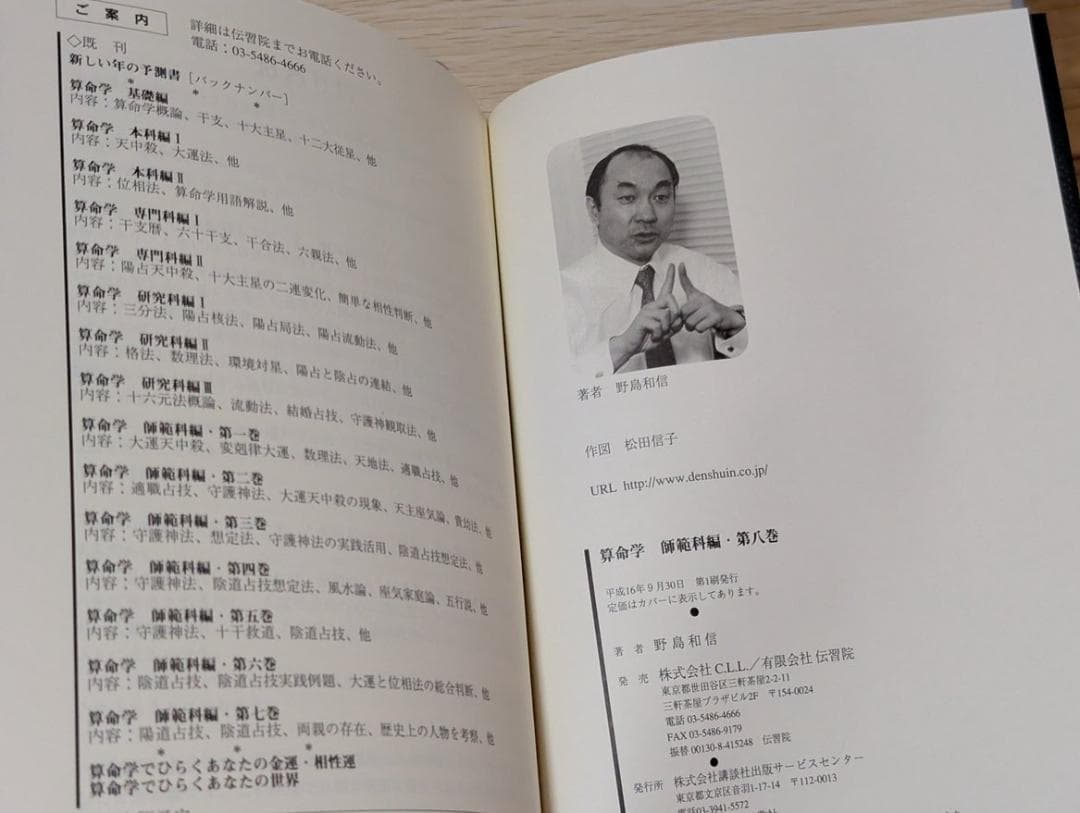 ご 案 内
詳細は伝習院までお電話ください。
電話：03-5486-4666
◇既 刊
新しい年の予測書 [バックナンバー]
＊ ＊ ＊
算命学 基礎編
内容：算命学概論、干支、十大主星、十二大従星、他
算命学 本科編Ⅰ
内容：天中殺、大運法、他
算命学 本科編Ⅱ
内容：位相法、算命学用語解説、他
算命学 専門科編Ⅰ
内容：干支暦、六十干支、干合法、六親法、他
算命学 専門科編Ⅱ
内容：陽占天中殺、十大主星の二連変化、簡単な相性判断、他
算命学 研究科編Ⅰ
内容：三分法、陽占核法、陽占局法、陽占流動法、他
算命学 研究科編Ⅱ
内容：格法、数理法、環境対星、陽占と陰占の連結、他
算命学 研究科編Ⅲ
内容：十六元法概論、流動法、結婚占技、守護神観取法、他
算命学 師範科編・第一巻
内容：大運天中殺、変剋律大運、数理法、天地法、適職占技、他
算命学 師範科編・第二巻
内容：適職占技、守護神法、大運天中殺の現象、天主座気論、貴幼法、他
算命学 師範科編・第三巻
内容：守護神法、想定法、守護神法の実践活用、陰道占技想定法、他
算命学 師範科編・第四巻
内容：守護神法、陰道占技想定法、風水論、座気家庭論、五行説、他
算命学 師範科編・第五巻
内容：守護神法、十干救道、陰道占技、他
算命学 師範科編・第六巻
内容：陰道占技、陰道占技実践例題、大運と位相法の総合判断、他
算命学 師範科編・第七巻
内容：陽道占技、陰道占技、両親の存在、歴史上の人物を考察、他
＊ ＊ ＊
算命学でひらくあなたの金運・相性運
算命学でひらくあなたの世界
著者 野島和信
作図 松田信子
URL http://www.denshuin.co.jp/
算命学 師範科編・第八巻
平成16年9月30日 第1刷発行
定価はカバーに表示してあります。
●
著 者 野島和信
発 売 株式会社C.L.L.／有限会社伝習院
東京都世田谷区三軒茶屋2-2-11
三軒茶屋プラザビル2F 〒154-0024
電話 03-5486-4666
FAX 03-5486-9179
振替 00130-8-415248 伝習院
●
発行所 株式会社講談社出版サービスセンター
東京都文京区音羽1-17-14 〒112-0013
電話 03-3941-5572